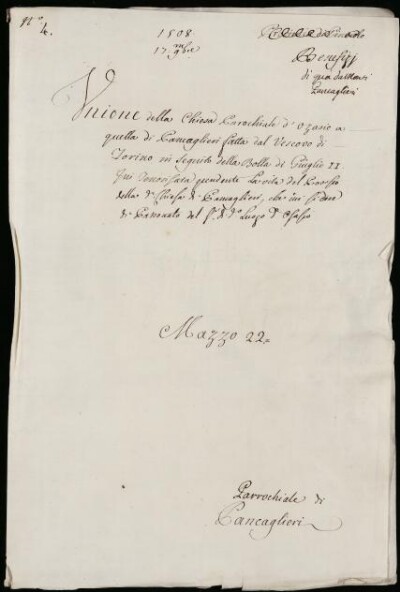 N.° 4.
1508
17 9bre
Benefizj
di qua da Monti
Pancaglieri
Unione della Chiesa Parochiale d'Ozario a
quella di Pancaglieri fatta dal Vescovo di
Torino in seguito della Bolla di Giuglio II
pendente la vita del
della d.a Chiesa di Pancaglieri, che ivi si dice
di Patronato del S.r di d.o Luogo
Mazzo 22=
Parrochiale di
Pancaglieri